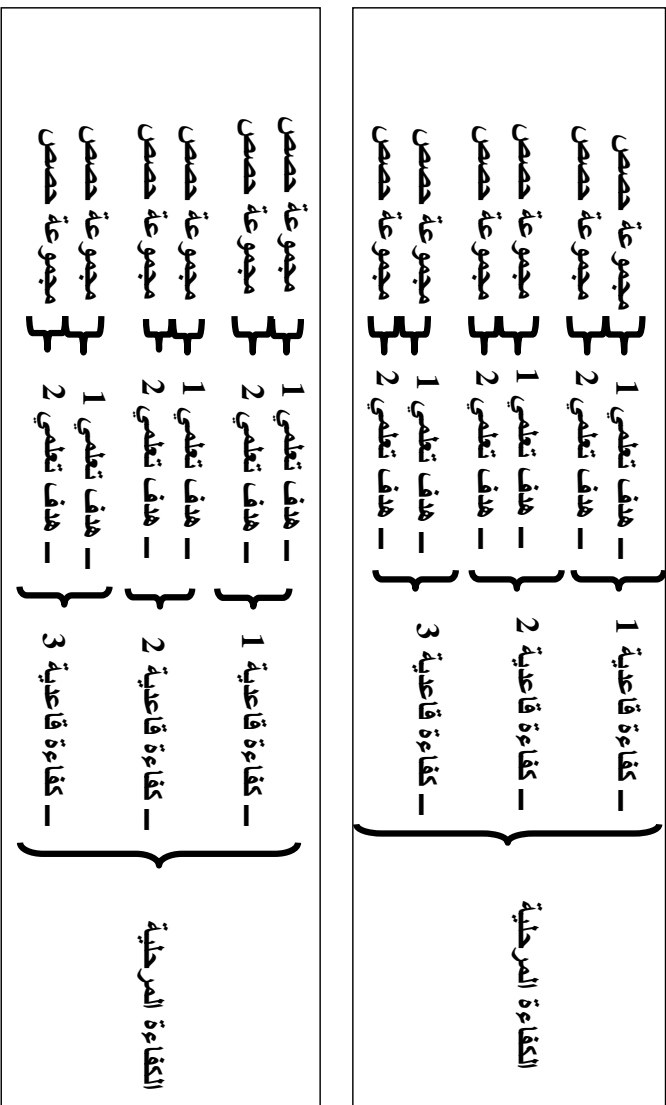 الكفاءة المرحلية
– كفاءة قاعدية 1
– كفاءة قاعدية 2
– كفاءة قاعدية 3
– هدف تعلمي 1
– هدف تعلمي 2
– هدف تعلمي 1
– هدف تعلمي 2
– هدف تعلمي 1
– هدف تعلمي 2
مجموعة حصص
مجموعة حصص
مجموعة حصص
مجموعة حصص
مجموعة حصص
مجموعة حصص
الكفاءة المرحلية
– كفاءة قاعدية 1
– كفاءة قاعدية 2
– كفاءة قاعدية 3
– هدف تعلمي 1
– هدف تعلمي 2
– هدف تعلمي 1
– هدف تعلمي 2
– هدف تعلمي 1
– هدف تعلمي 2
مجموعة حصص
مجموعة حصص
مجموعة حصص
مجموعة حصص
مجموعة حصص
مجموعة حصص